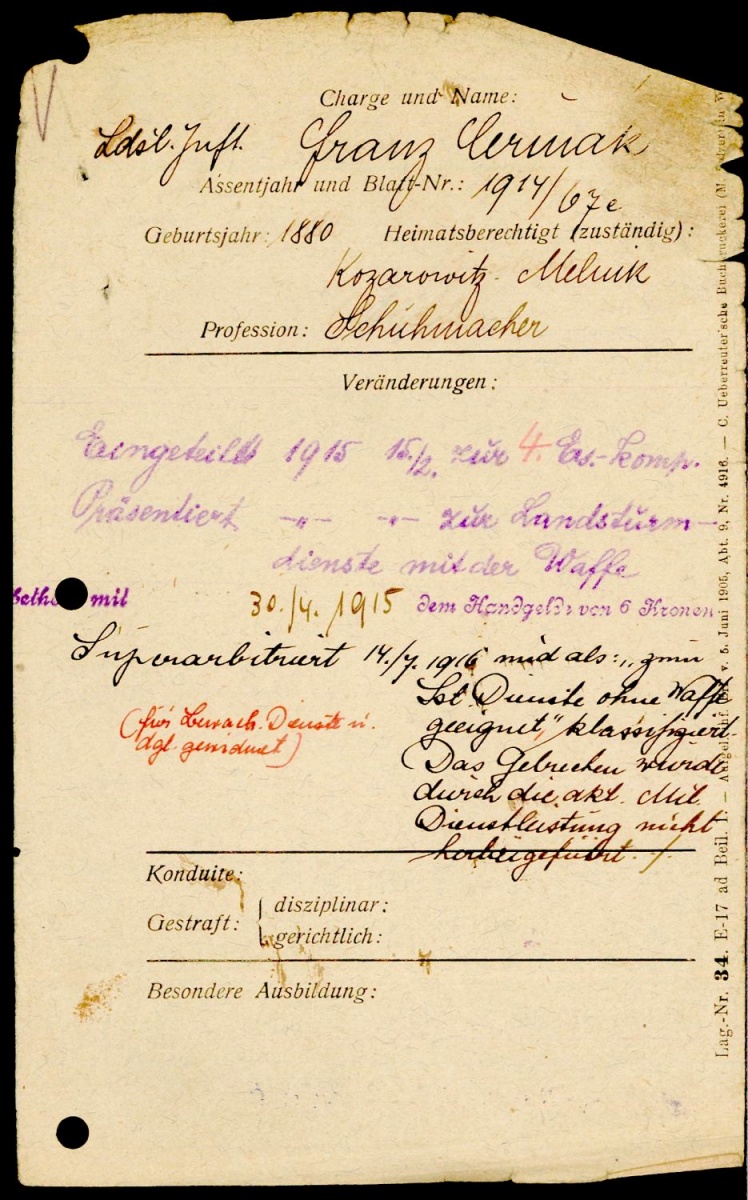 Charge und Name:
Ldst. Inft. Franz Čermak
Assentjahr und Blatt-Nr.: 1914/67e
Geburtsjahr: 1880 Heimatsberechtigt (zuständig):
Kozarowitz - Melnik
Profession: Schuhmacher
Veränderungen:
Eingeteilt 1915 15/2. zur 4. Ers.-Komp.
Präsentiert -"- -"- zur Landsturm-
dienste mit der Waffe
mit 30./4. 1915 dem Handgelde von 6 Kronen
Superarbitriert 14./7. 1916 und als: „zum
Lst. Dienste ohne Waffe
geeignet," klassifiziert.
(für Bewach. Dienste u.
dgl. gewidmet)
Das Gebrechen wurde
durch die akt. Mil.
Dienstleistung nicht
herbeigeführt. /.
Konduite:
Gestraft: { disziplinar:
gerichtlich:
Besondere Ausbildung:
Lag.-Nr. 34. E-17 ad Beil. I. — v. 5. Juni 1905, Abt. 9, Nr. 4916. — C. Ueberreuter'sche Buchdruckerei